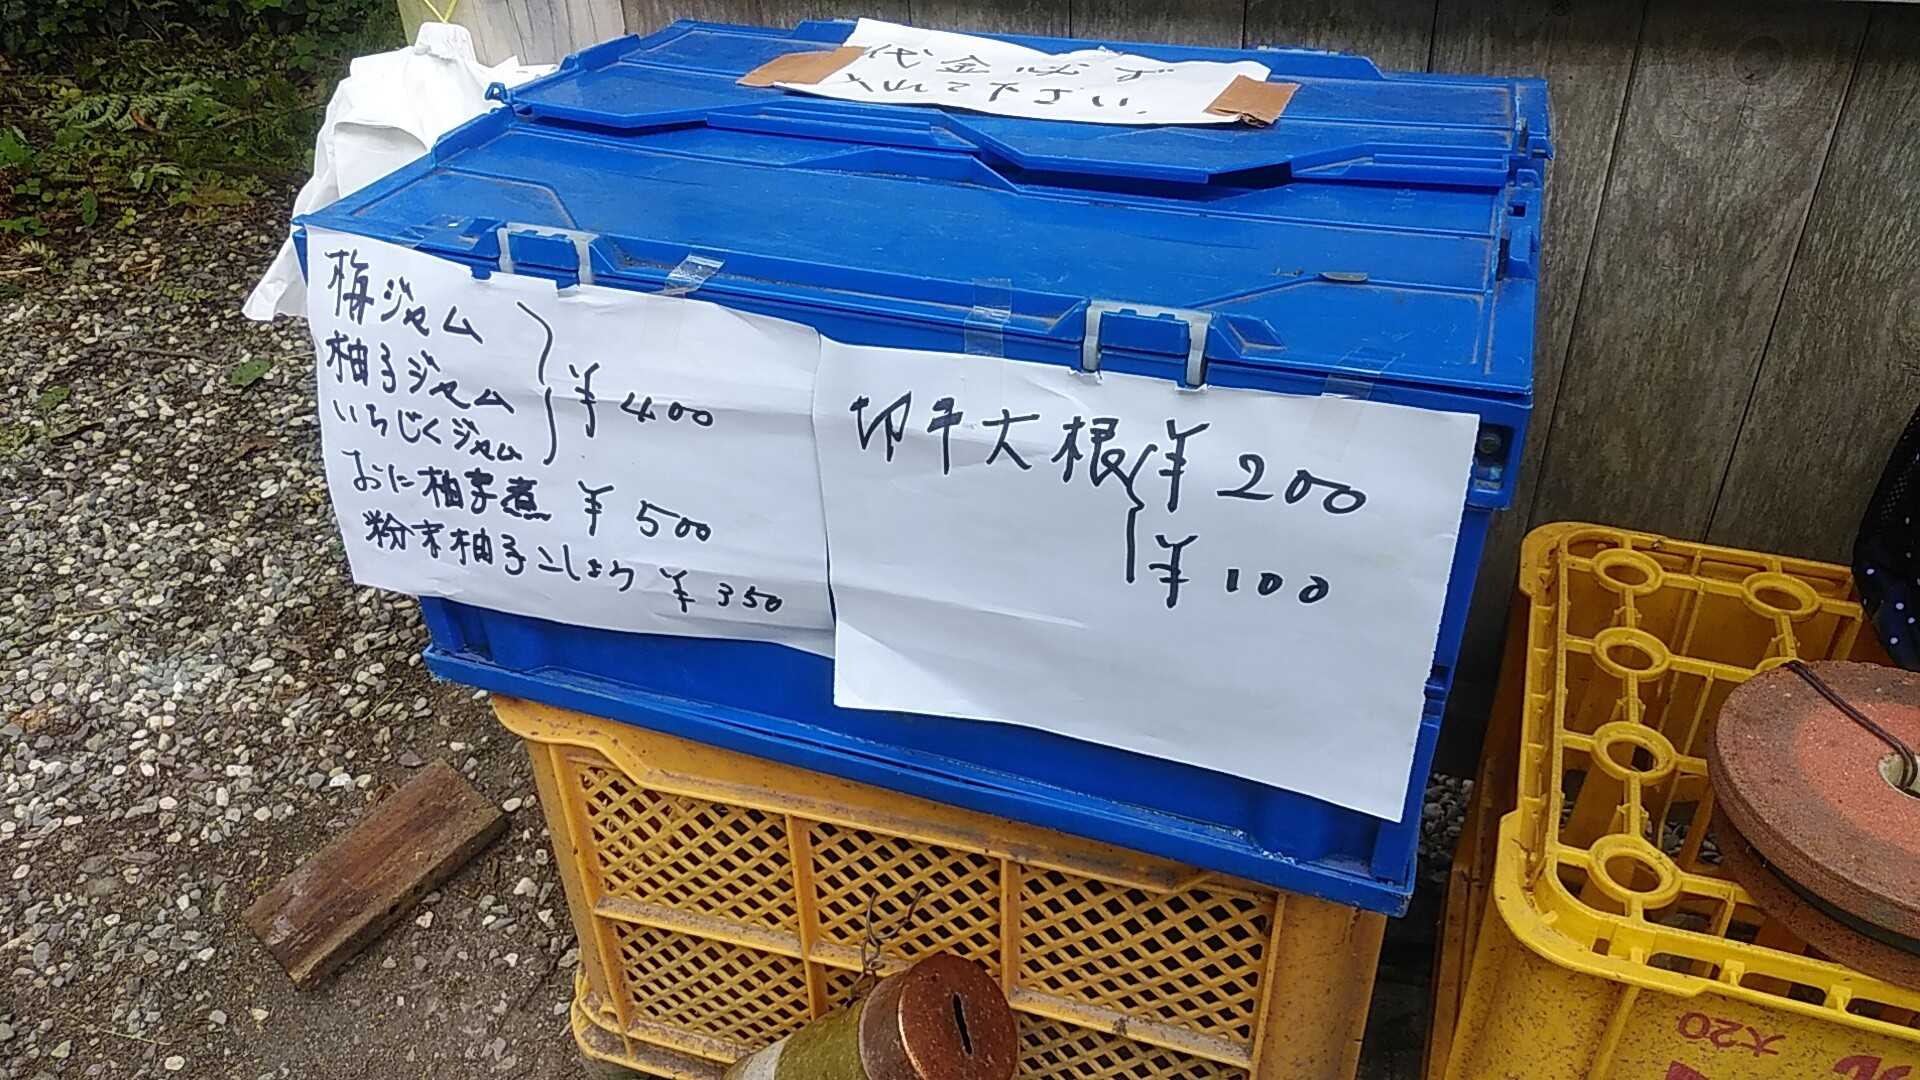 代金必ず
入れて下さい。
梅ジャム
柚子ジャム ¥400
いちじくジャム
おに柚子煮 ¥500
粉末柚子こしょう ¥350
切干大根 ¥200
¥100
大20